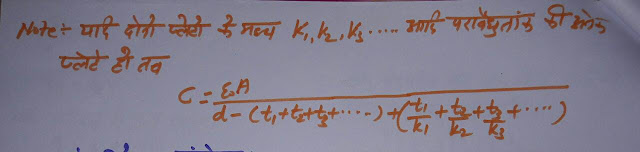 Note:- यदि दोनो प्लेटो के मध्य K₁, K₂, K₃ ..... आदि परावैधुतांक की अनेक
प्लेटे हो तब
C = ε₀A / d - (t₁+t₂+t₃+....) + (t₁/K₁ + t₂/K₂ + t₃/K₃ + ....)